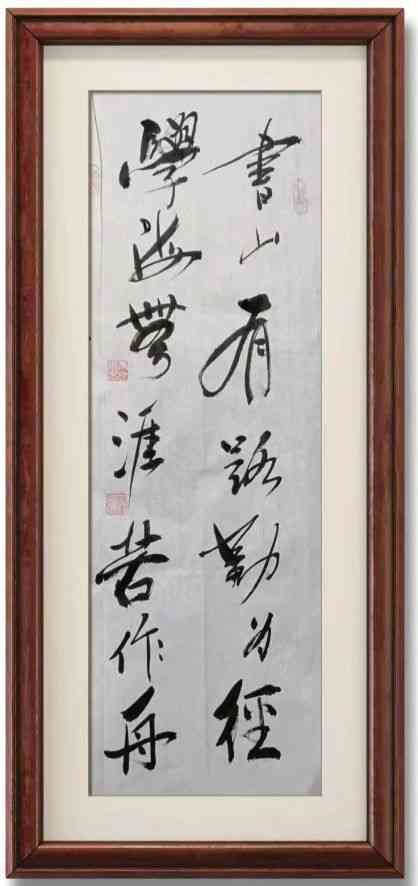 書山有路勤为徑
學海無涯苦作舟